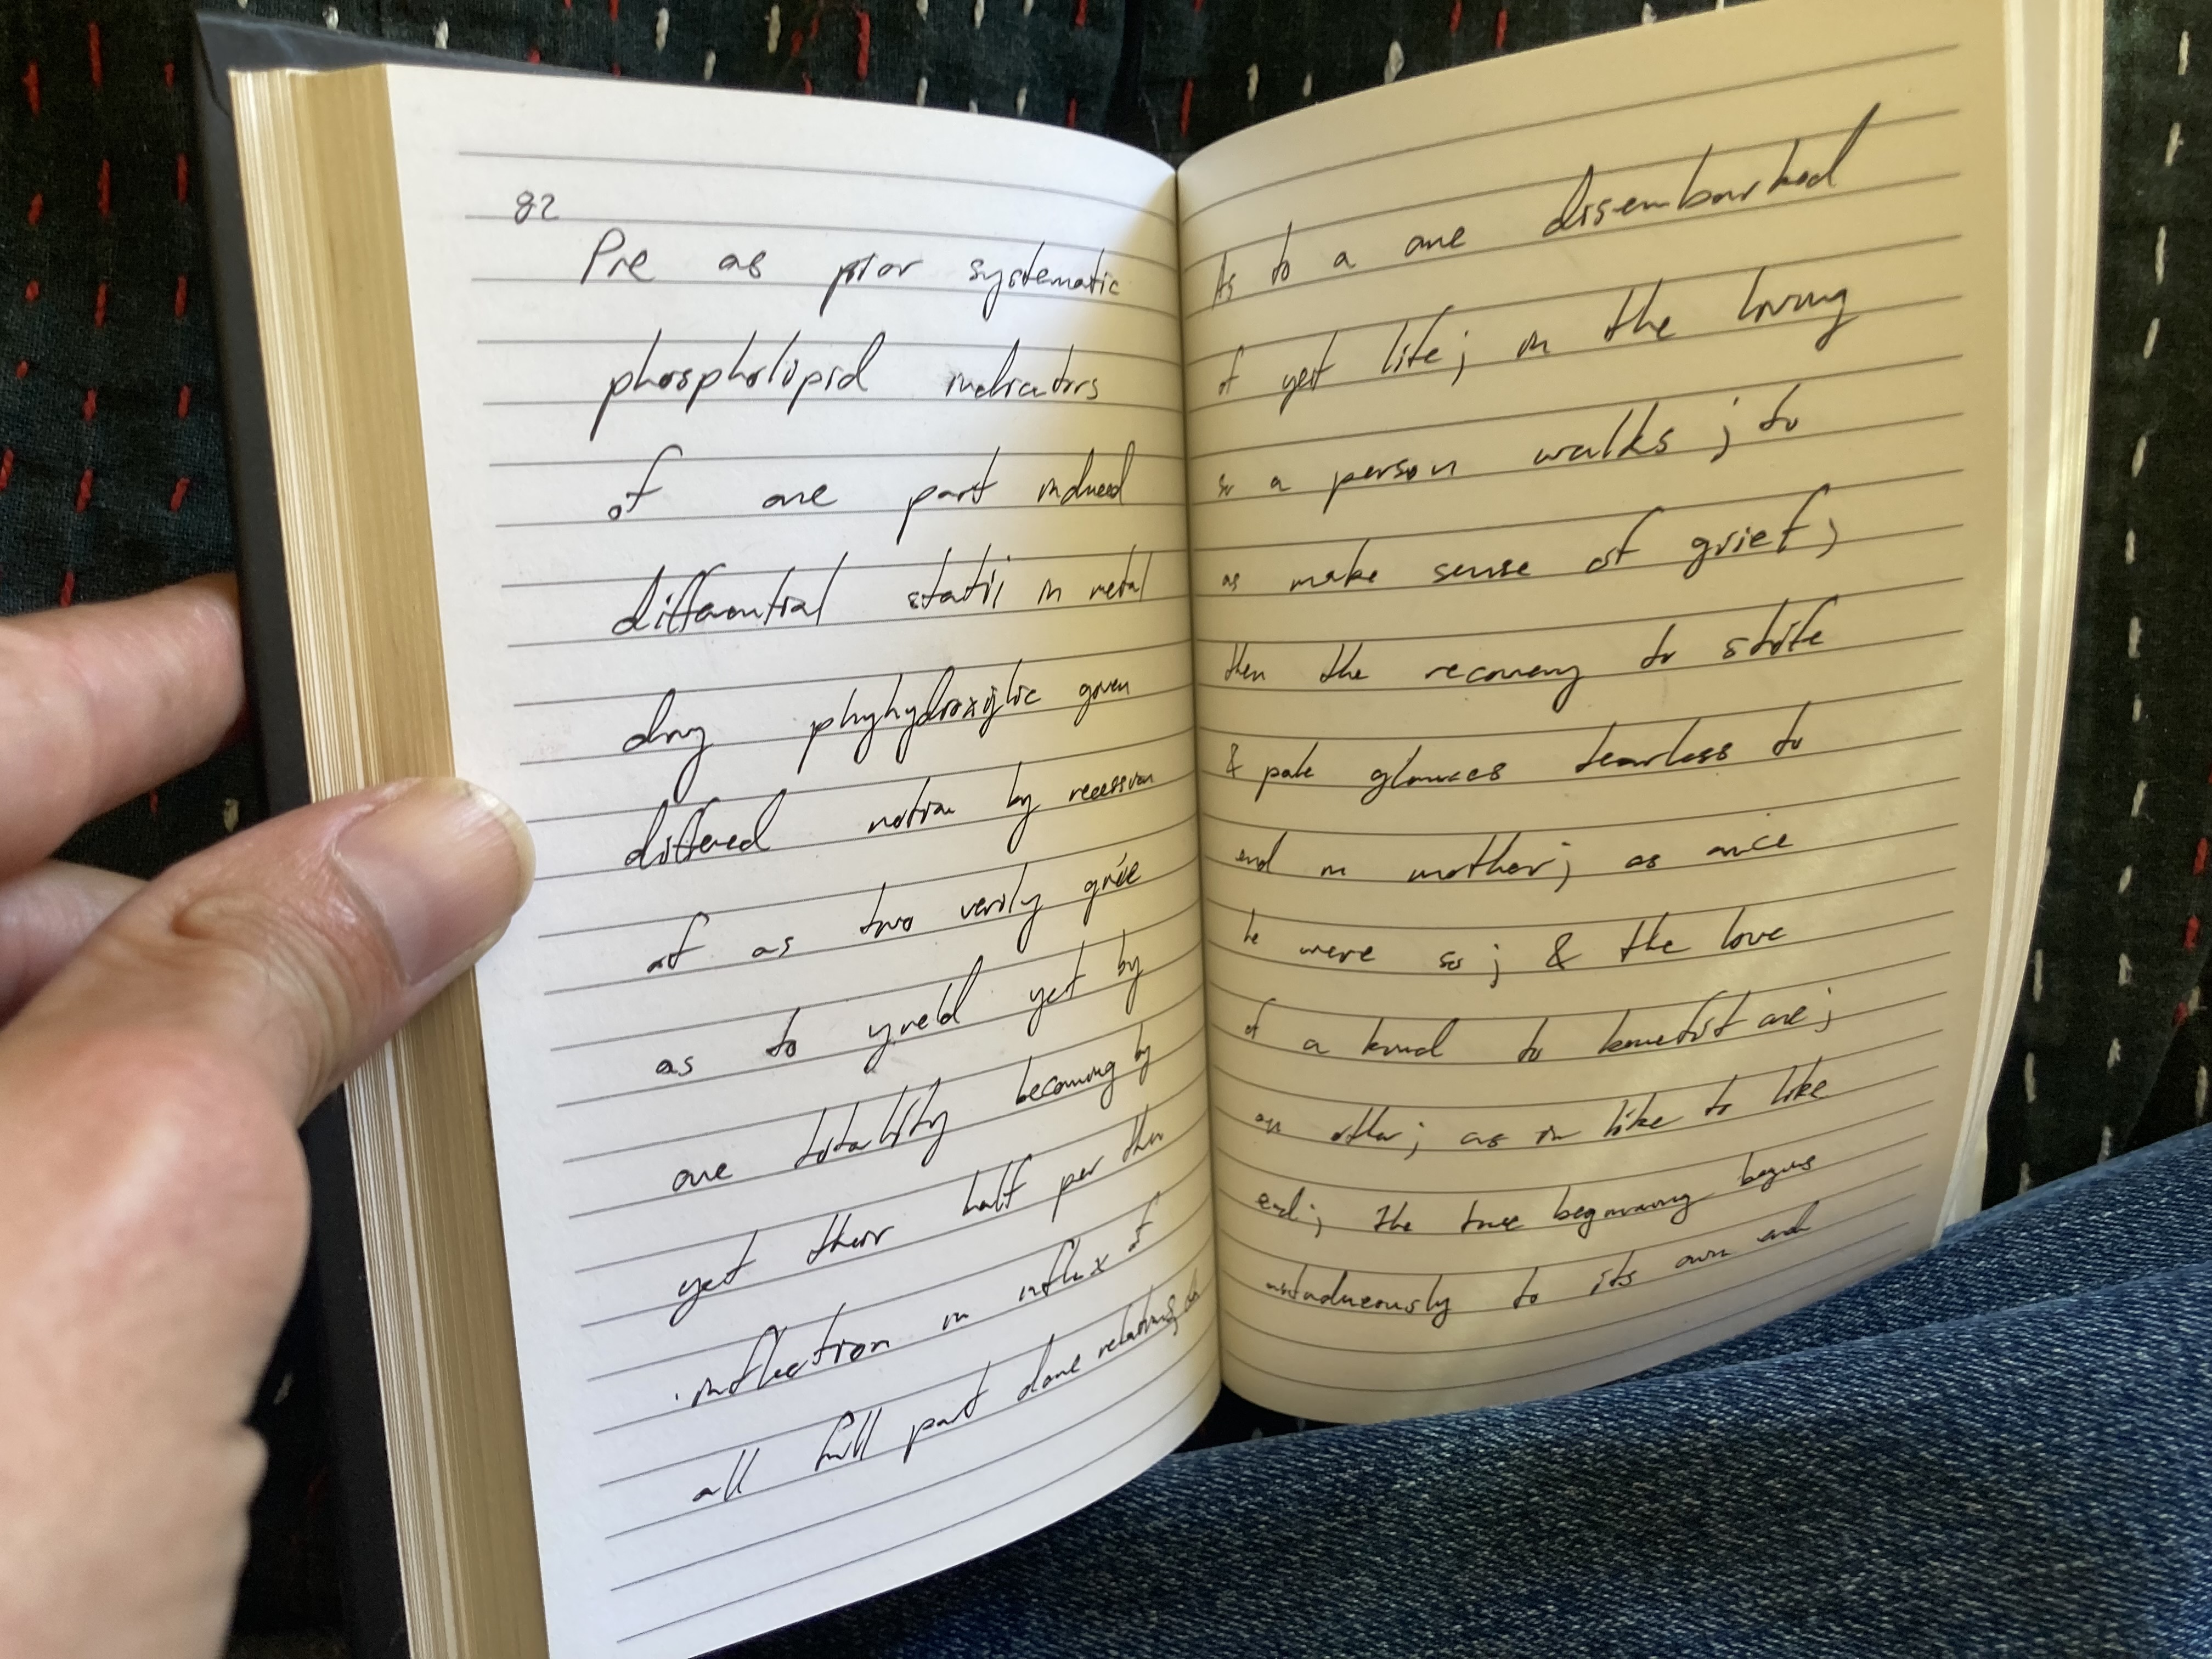 82
Pre as prior systematic
phospholipid indicators
of one part induced
differential statii in metal
dry phyhydroxylic given
differed notion by recession
of as two verily grüe
as to yield yet by
one totality becoming by
yet their half per then
inflection in influx of
all full part done relating to
As to a one disembarked
of yet life; in the loving
so a person walks; to
as make sense of grief;
then the recovery to strife
& pale glances tearless to
end in mother; as once
he were so; & the love
of a kind to benefit one;
an other; as in like to like
end; the true beginning begins
to its own end